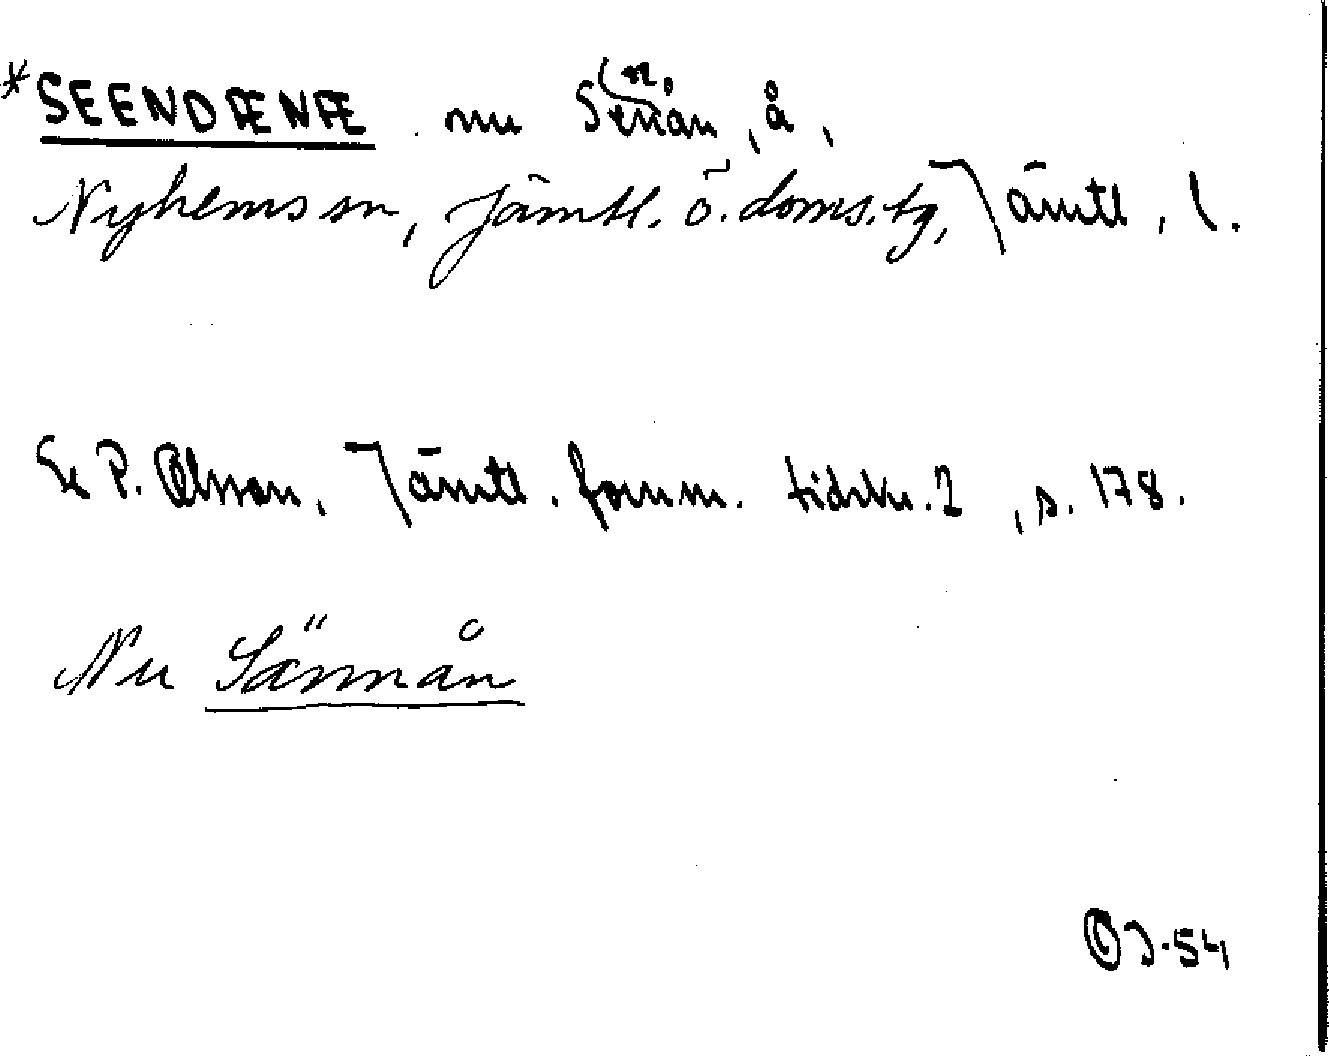 *SEENDÆNÆ nu Senån, å,
Nyhems sn, Jämtl. ö. doms. tg, Jämtl. l.
Se P. Olsson, Jämtl. fornm. tidskr. 2, s. 178.
Nu Sännån
OJ-54